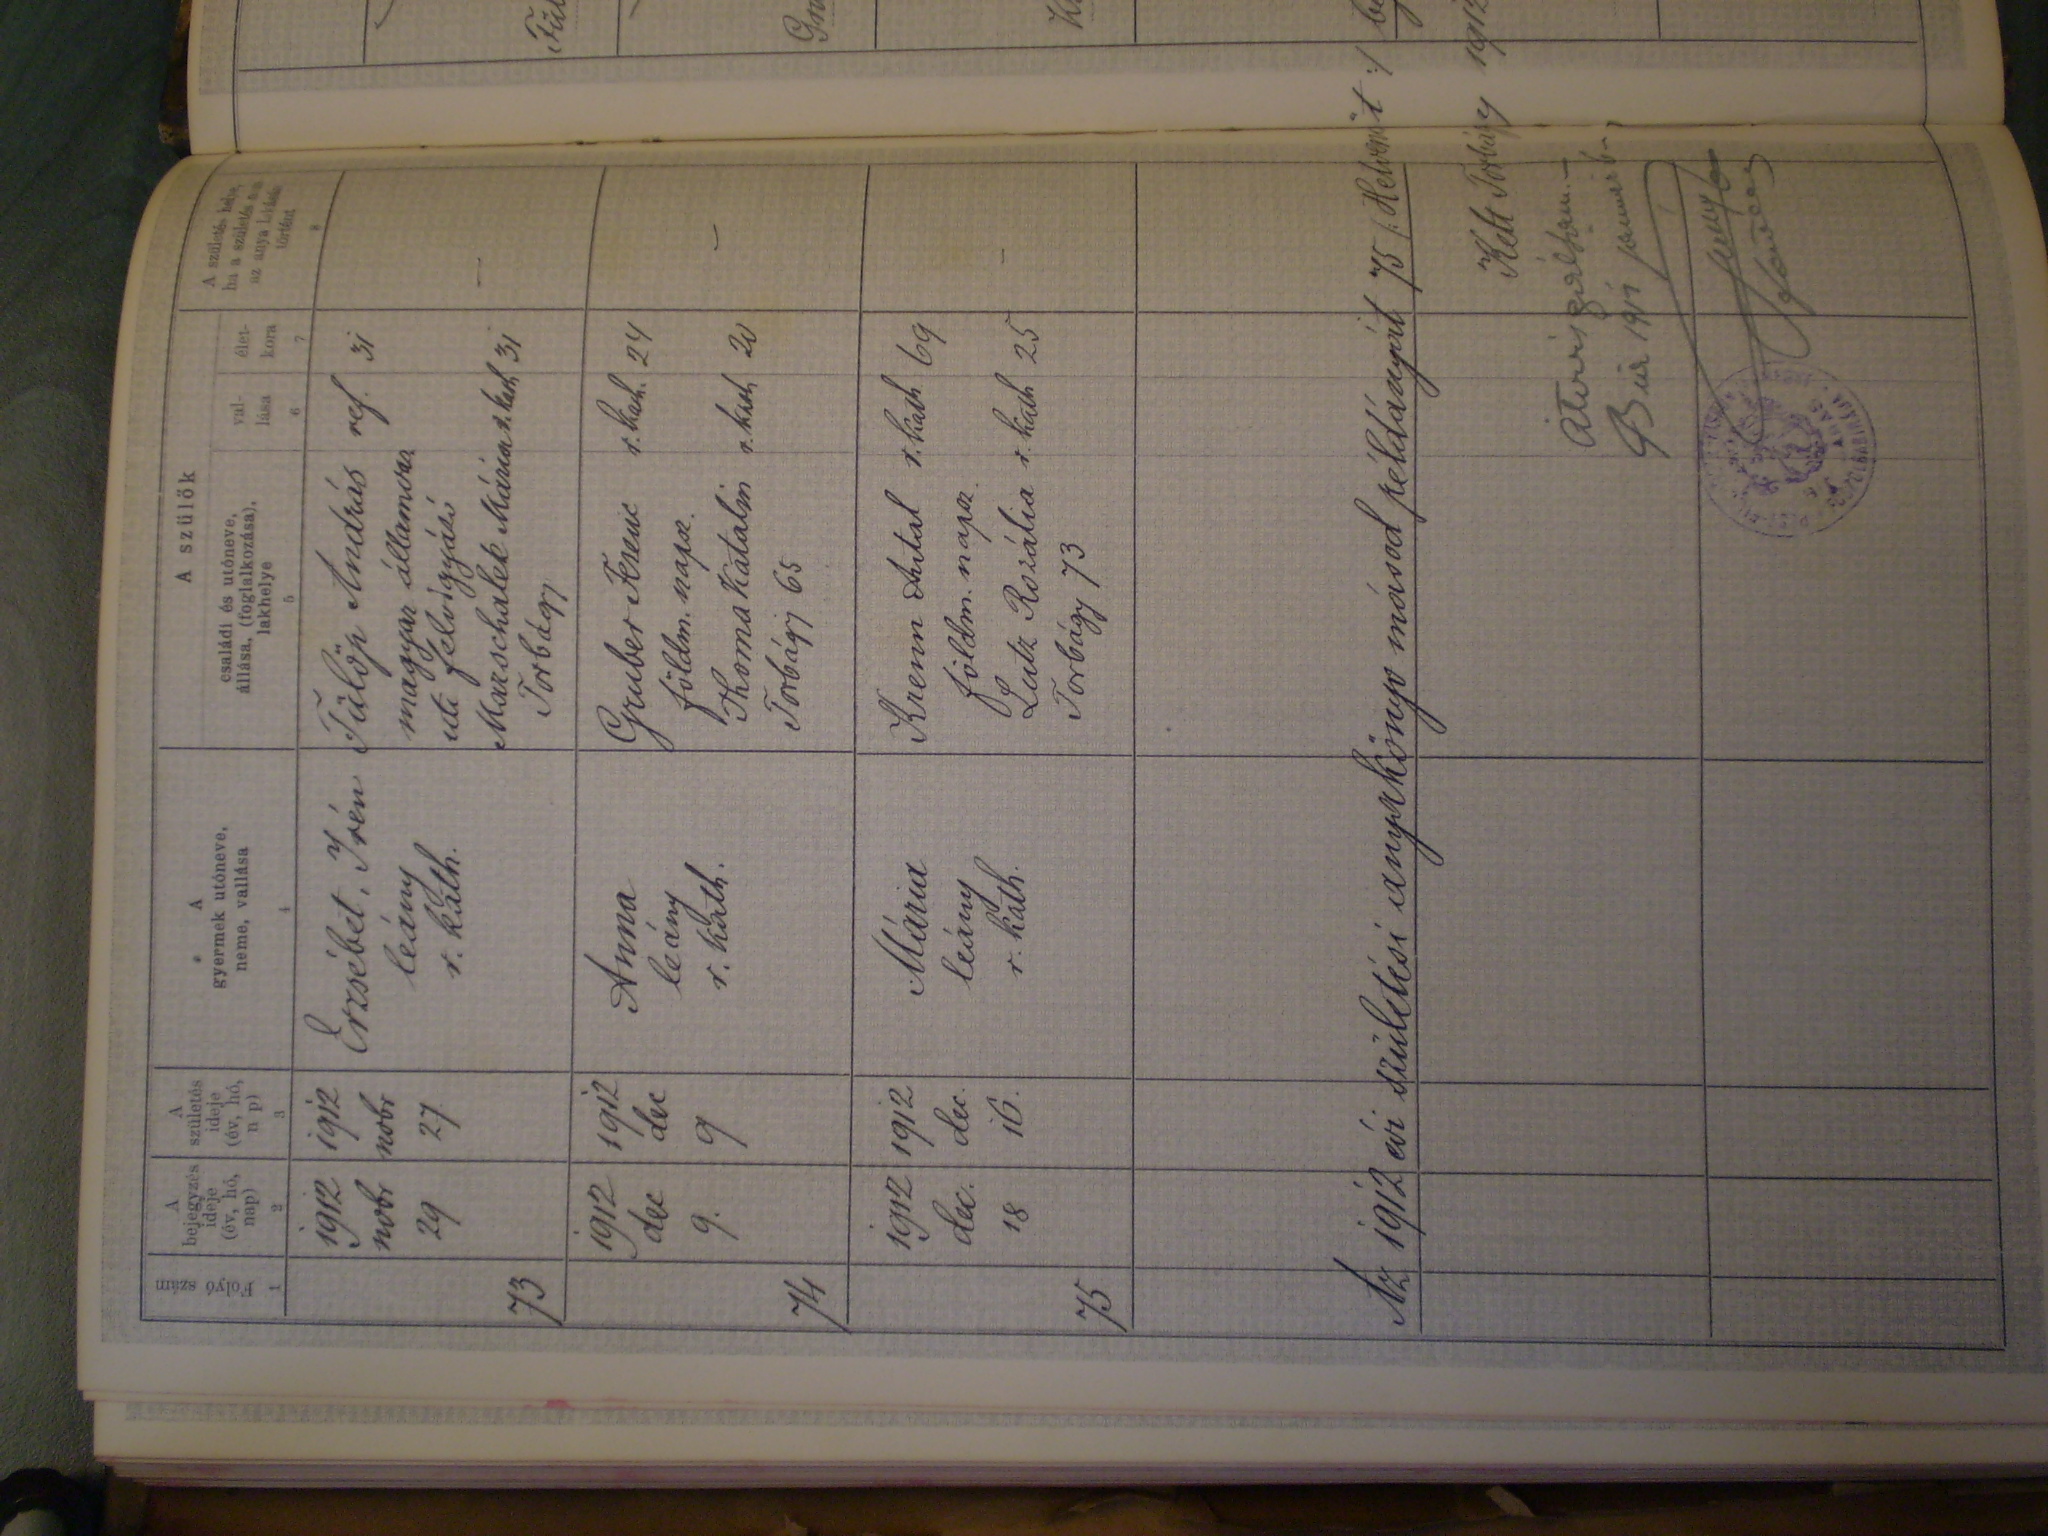 Folyó szám
1
A
bejegyzés
ideje
(év, hó,
nap)
2
A
születés
ideje
(év, hó,
n p)
3
A
gyermek utóneve,
neme, vallása
4
A szülők
családi és utóneve,
állása, (foglalkozása),
lakhelye
5
val-
lása
6
élet-
kora
7
A születés helye,
ha a születés nem
az anya lakásán
történt
8
73
1912
nobr
29
1912
nobr
27
Erzsébet, Irén
leány
r. kath.
Fülöp András ref. 31
magyar államvas
uti felvigyázó
Marschalek Mária r. kath 31
Torbágy
—
74
1912
dec
9.
1912
dec
9
Anna
leány
r. kath.
Gruber Ferenc r. kath. 24
földm. napsz.
Thoma Katalin r. kath 20
Torbágy 65
—
75
1912
dec.
18
1912
dec.
16.
Mária
leány
r. kath.
Krem Antal r. kath 69
földm. napsz.
Lutz Rozália r. kath 25
Torbágy 73
—
Az 1912 évi születési anyakönyv másod példányát 75 /: Hetvenöt :/
Kelt Torbágy 1912
Átvizsgáltam.—
Bia 1913